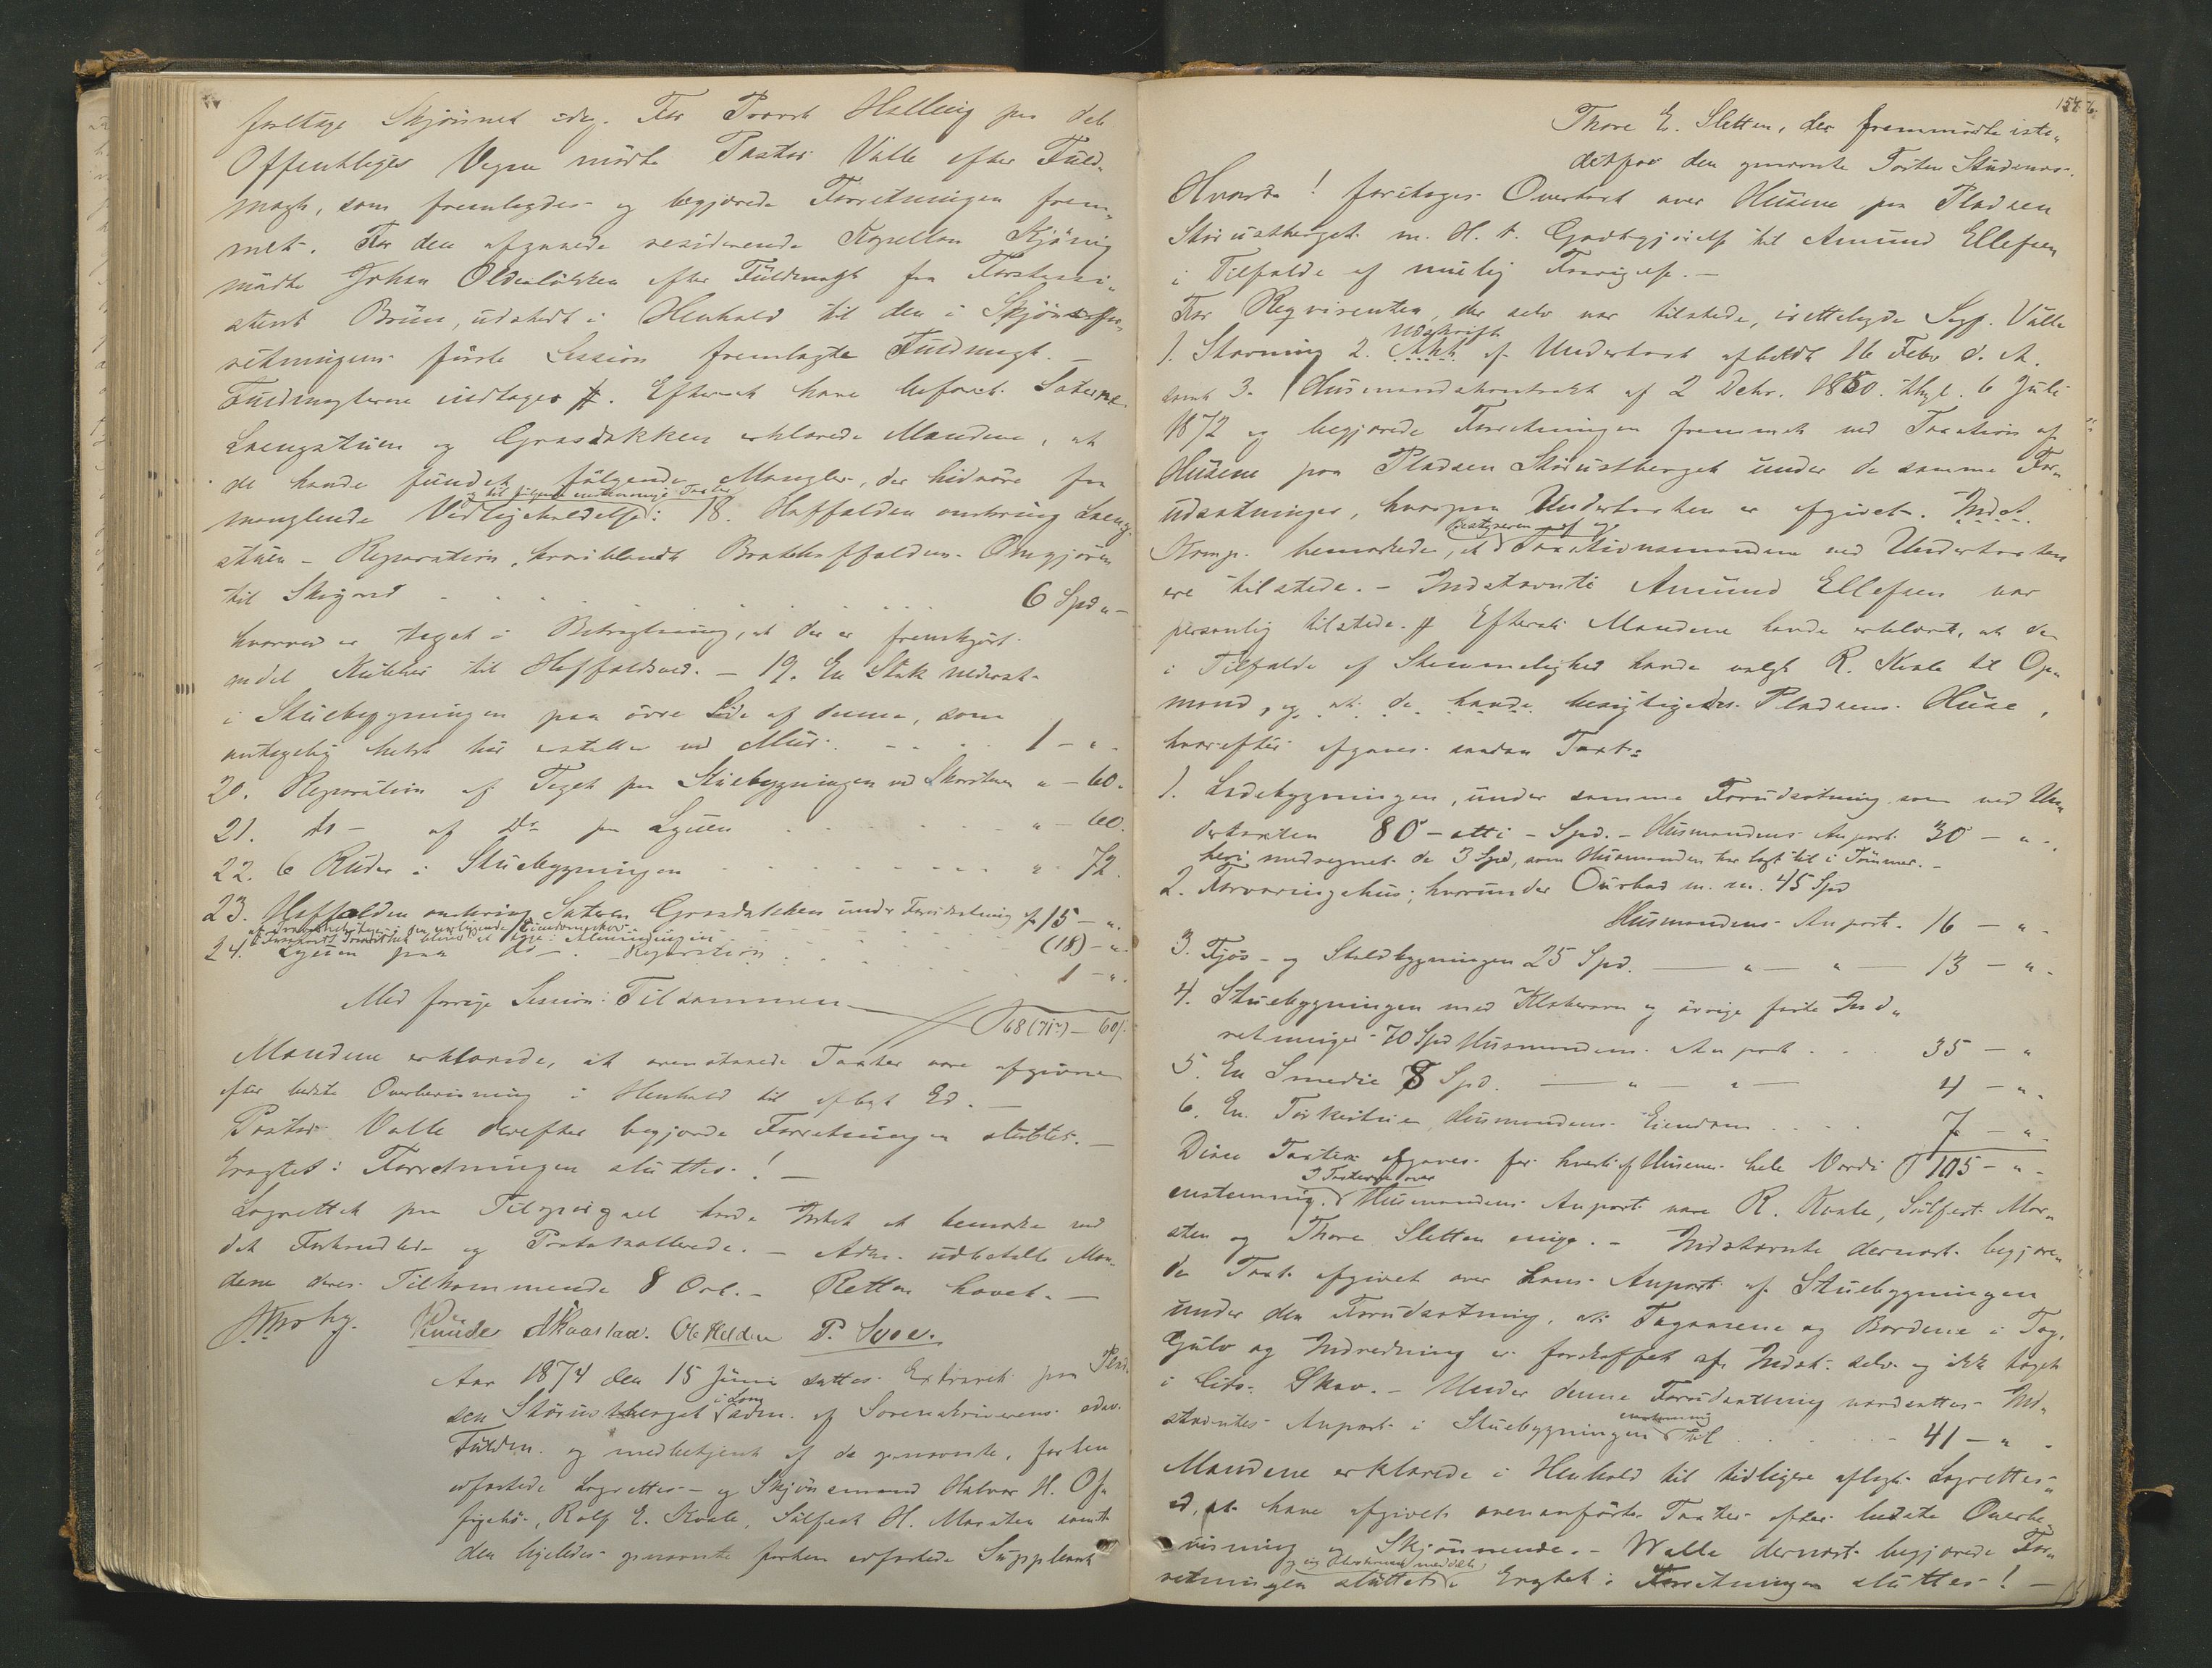 foretage Skjønnet idag. For Provst Halling paa det
Offentliges Vegne mødte Pastor Valle efter Fuld-
magt, som fremlagdes og begjærede Forretningen frem-
met. For den afgaaede residerende Kapellan Kjønig
mødte Johan Oldenløkken efter Fuldmagt fra Forstassi-
stent Bruun, udstedt i Henhold til den i Skjønsfor-
retningens første Session fremlagte Fuldmagt. —
Fuldmagterne indtages #. Efterat have befaret Sæterne
Laengstuen og Graasdokken erklærede Mændene, at
de havde fundet følgende Mangler, der hidrøre fra
og til følgende enstemmige Taxter
manglende Vedligeholdelse: 18. Haffælden omkring Laeng-
stuen – Reparation, hvoriblandt Omgjøren
til Skigard . . . 6 Spd „ –
hvorved er taget i Betragtning, at der er fremkjørt
endel til Haffældved. – 19. En Stok nederst
i Stuebygningen paa øvre Side af denne, som
antagelig helst bør erstattes ved Mur . . . 1 – „ -
20. Reparation af Taget paa Stuebygningen ved Skorstenen „ – 60.
21. do – af Do paa Lyuen . . . „ – 60.
22. 6 Ruder i Stuebygningen . . . „ 72.
23. Haffælden omkring Sæteren Graasdokken under Forudsætning af 15 – „.
(18) – „.
24. Lyuen paa do –. Reparation . . . 1 – „.
Med forrige Session: Tilsammen 68 (71) – 60
Mændene erklærede, at ovenstaaende Taxter vare afgivne
efter bedste Overbevisning i Henhold til aflagt Ed. —
Pastor Valle derefter begjærede Forretningen sluttet. —
Eragtet: Forretningen sluttes! —
Lagrettet paa Tilspørgsel havde Intet at bemærke ved
det Forhandlede og Protokollerede. – Adm. udbetalte Mæn-
dene deres Tilkommende 8 Ort. – Retten hævet. —
Knude Ole Kolden P. Svee.
Aar 1874 den 15 Juni sattes Extraret paa Plad-
i Lom
sen Størustberget adm. af Sorenskriverens edsv.
Fuldm. og medbetjent af de opnævnte, forhen
edfæstede Lagrettes- og Skjønsmænd Halvor H. Of-
figsbø, Rolf E. Kvale, Sulfest H. Marsten samt
den ligeledes opnævnte forhen edfæstede Suppleant
157.
Thore E. Sletten, der fremmødte iste-
detfor den opnævnte Torsten Studenes.
Hvorda! foretoges Overtaxt over Husene paa Pladsen
Størustberget m. H. t. Godtgjørelse til Amund Ellefsen
i Tilfælde af mulig Fravigelse. —
For Reqvirenten, der selv var tilstede, irettelagde Sagf. Valle
Udskrift
1. Stævning 2. Akt af Undertaxt afholdt 16 Febr d. A.
samt 3. Husmandskontrakt af 2 Debr. 1850. thgl. 6 Juli
1872 og begjærede Forretningen fremmet ved Taxation af
Husene paa Pladsen Størustberget under de samme For-
udsætninger, hvorpaa Undertaxten er afgivet. Indst.
Bestyreren af og
Komp. bemærkede, at Taxationsmændene ved Undertaxten
ere tilstede. – Indstævnte Amund Ellefsen var
personlig tilstede. # Efterat Mændene havde erklæret, at de
i Tilfælde af Stemmelighed havde valgt R. Kvale til Op-
mand, og at de havde besigtiget Pladsens Huse,
hvorefter afgaves saadan Taxt:
1. Ladebygningen, under samme Forudsætning som ved Un-
dertaxten 80 – otti – Spd. – Husmandens Anpart 30 – „ -.
heri medregnet de 3 Spd, som Husmanden har lagt til i Tømmer. –
2. Forvaringshus; hvorunder Ourbod m. m. 45 Spd
Husmandens Anpart. 16 – „ -
3. Fjøs- og Staldbygningen 25 Spd. — „ — „ — 13 – „ -
4. Stuebygningen med Kakkelovn og øvrige faste Ind-
retninger 70 Spd Husmandens Anpart . . 35 – „
5. En Smedie 8 Spd. — „ — „ — 4 – „ -
6. En Tørkestue, Husmandens Eiendom . . . 7 – „ -
Disse Taxter afgaves for hvert af Husenes hele Værdi 105 – „ -
I Taxterne over
enstemmig. Husmandens Anpart vare R. Kvale, Sulfest Mar-
sten og Thore Sletten enige. – Indstævnte dernæst begjære-
de Taxt afgivet over hans Anpart af Stuebygningen
under den Forudsætning, at Tagaasene og Bordene i Tag,
Gulv og Indredning er forskaffet af Indst. selv og ikke taget
i Cits. Skov. – Under denne Forudsætning værdsattes Ind-
enstemmig
stævntes Anpart i Stuebygningen til . . . 41 – „ -
Mændene erklærede i Henhold til tidligere aflagt Lagrettes-
ed, at have afgivet ovenanførte Taxter efter bedste Overbe-
visning og Skjønnende. – Walle dernæst begjærede For-
og sig Udskrift meddelt
retningen sluttet. Eragtet: Forretningen sluttes! —